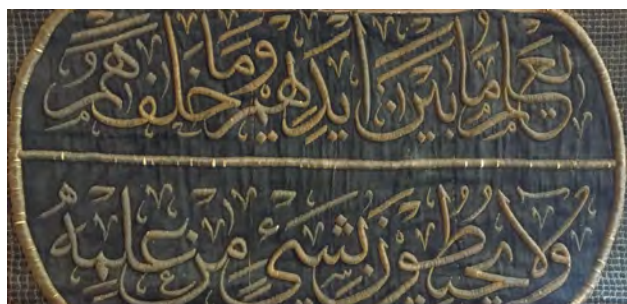 يعلم ما بين أيديهم وما خلفهم
ولا يحيطون بشيء من علمه